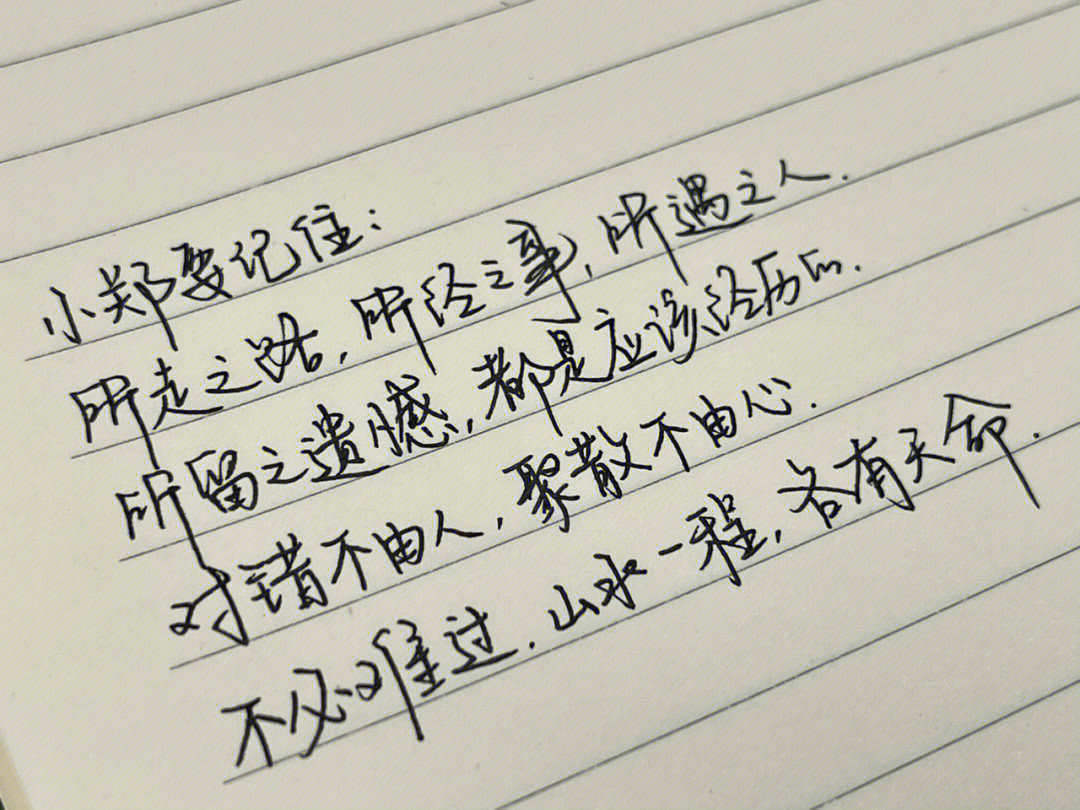 小郑要记住：
所走之路，所经之事，所遇之人.
所留之遗憾，都是应该经历的.
对错不由人，聚散不由心.
不必难过.山水一程，各有天命.